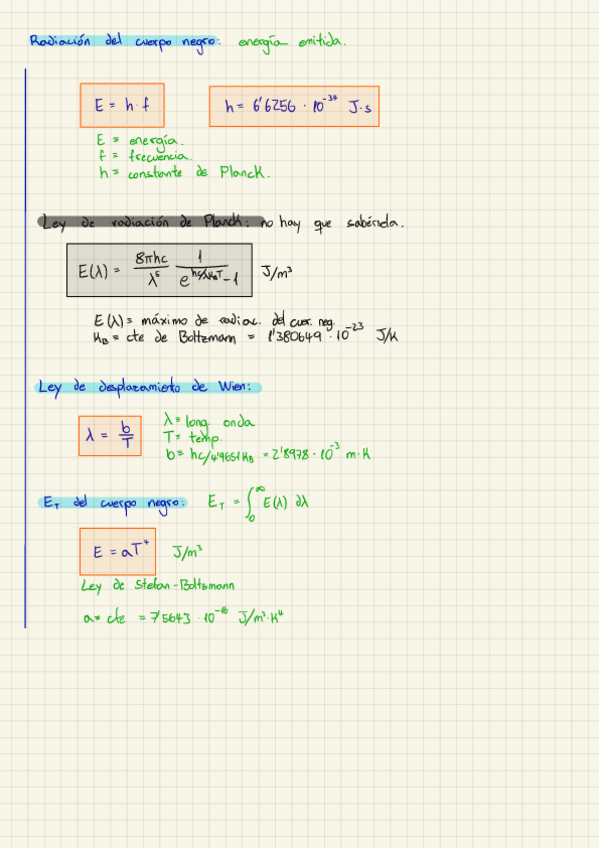 Radiación del cuerpo negro: energía emitida.
E = h · f h = 6'6256 · 10⁻³⁴ J·s
E = energía.
f = frecuencia.
h = constante de Planck.
Ley de radiación de Planck: no hay que sabérsela.
E(λ) = 8πhc/λ⁵ 1/(e^(hc/λK_BT) - 1) J/m³
E(λ) = máximo de radiac. del cuer. neg.
K_B = cte de Boltzmann = 1'380649 · 10⁻²³ J/K
Ley de desplazamieto de Wien:
λ = b/T
λ = long. onda
T = temp.
b = hc/4'9651K_B = 2'8978 · 10⁻³ m·K
E_T del cuerpo negro: E_T = ∫₀^∞ E(λ) dλ
E = aT⁴ J/m³
Ley de Stefan-Boltzmann
a = cte = 7'5643 · 10⁻¹⁶ J/m³·K⁴